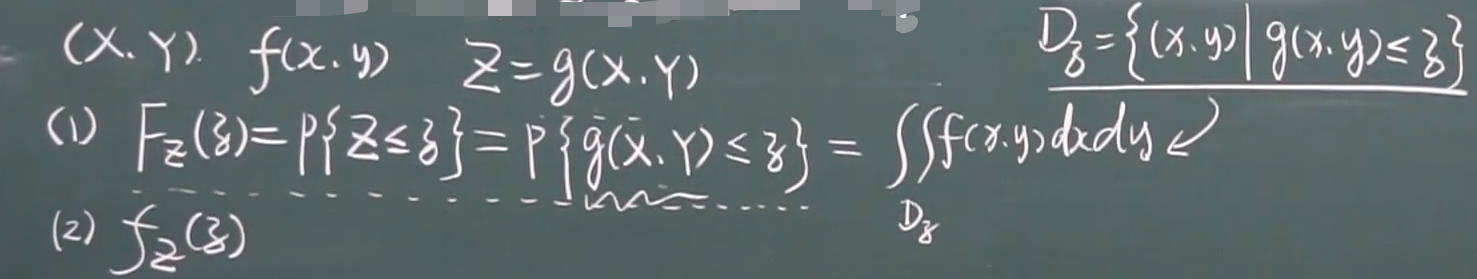 (X.Y). f(x.y) Z=g(X.Y) D_z={(x.y)|g(x.y)≤z}
(1) F_Z(z)=P{Z≤z}=P{g(X.Y)≤z}=∬_{D_z} f(x.y)dxdy
(2) f_Z(z)